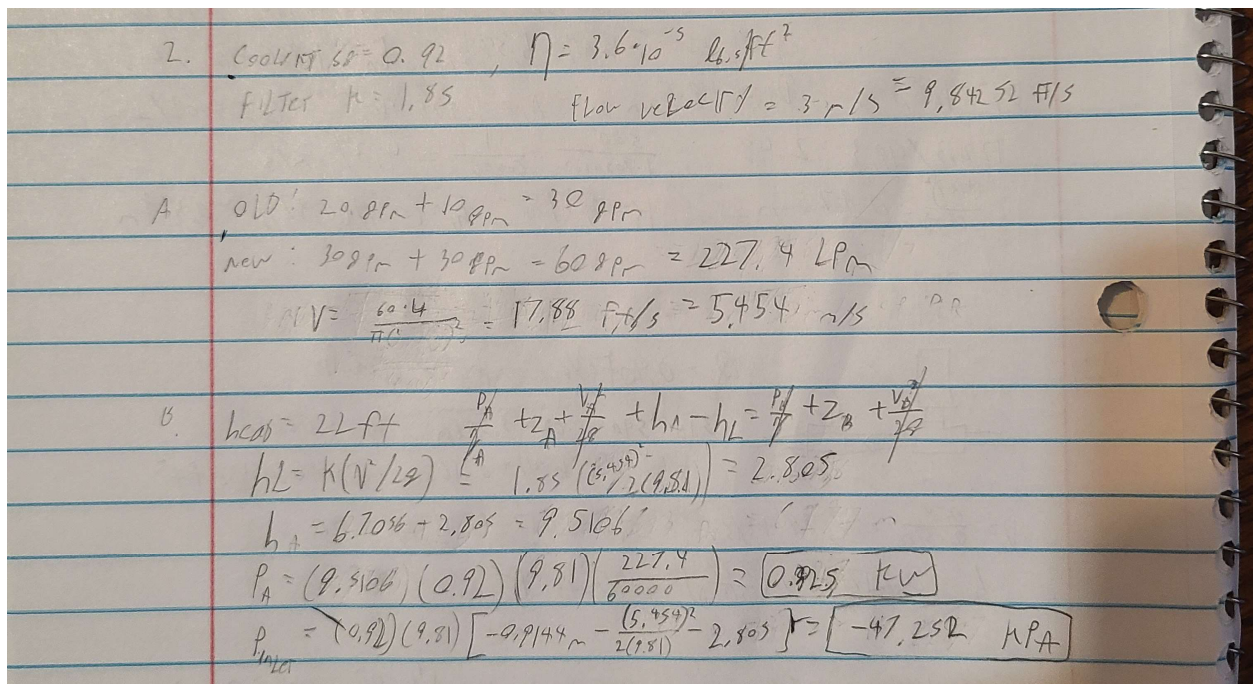 2. COOLANT SG = 0.92 , η = 3.6·10^-5 lb·s/ft²
FILTER K = 1.85 FLOW VELOCITY = 3 m/s = 9.84252 ft/s
A OLD: 20 gpm + 10 gpm = 30 gpm
new: 30 gpm + 30 gpm = 60 gpm = 227.4 LPm
V = 60·4 / π( )² = 17.88 ft/s = 5.454 m/s
B. = 22 ft P_A/γ + Z_A + V_A²/2g + h_A - h_L = P_B/γ + Z_B + V_B²/2g
hL = K(V²/2g) = 1.85 ((5.454)²/2(9.81)) = 2.805
h_A = 6.7056 + 2.805 = 9.5106
P_A = (9.5106)(0.92)(9.81)(227.4/60000) = 0.325 KW
P_inlet = (0.92)(9.81)[-0.9144m - (5.454)²/2(9.81) - 2.805] = -47.252 KPA